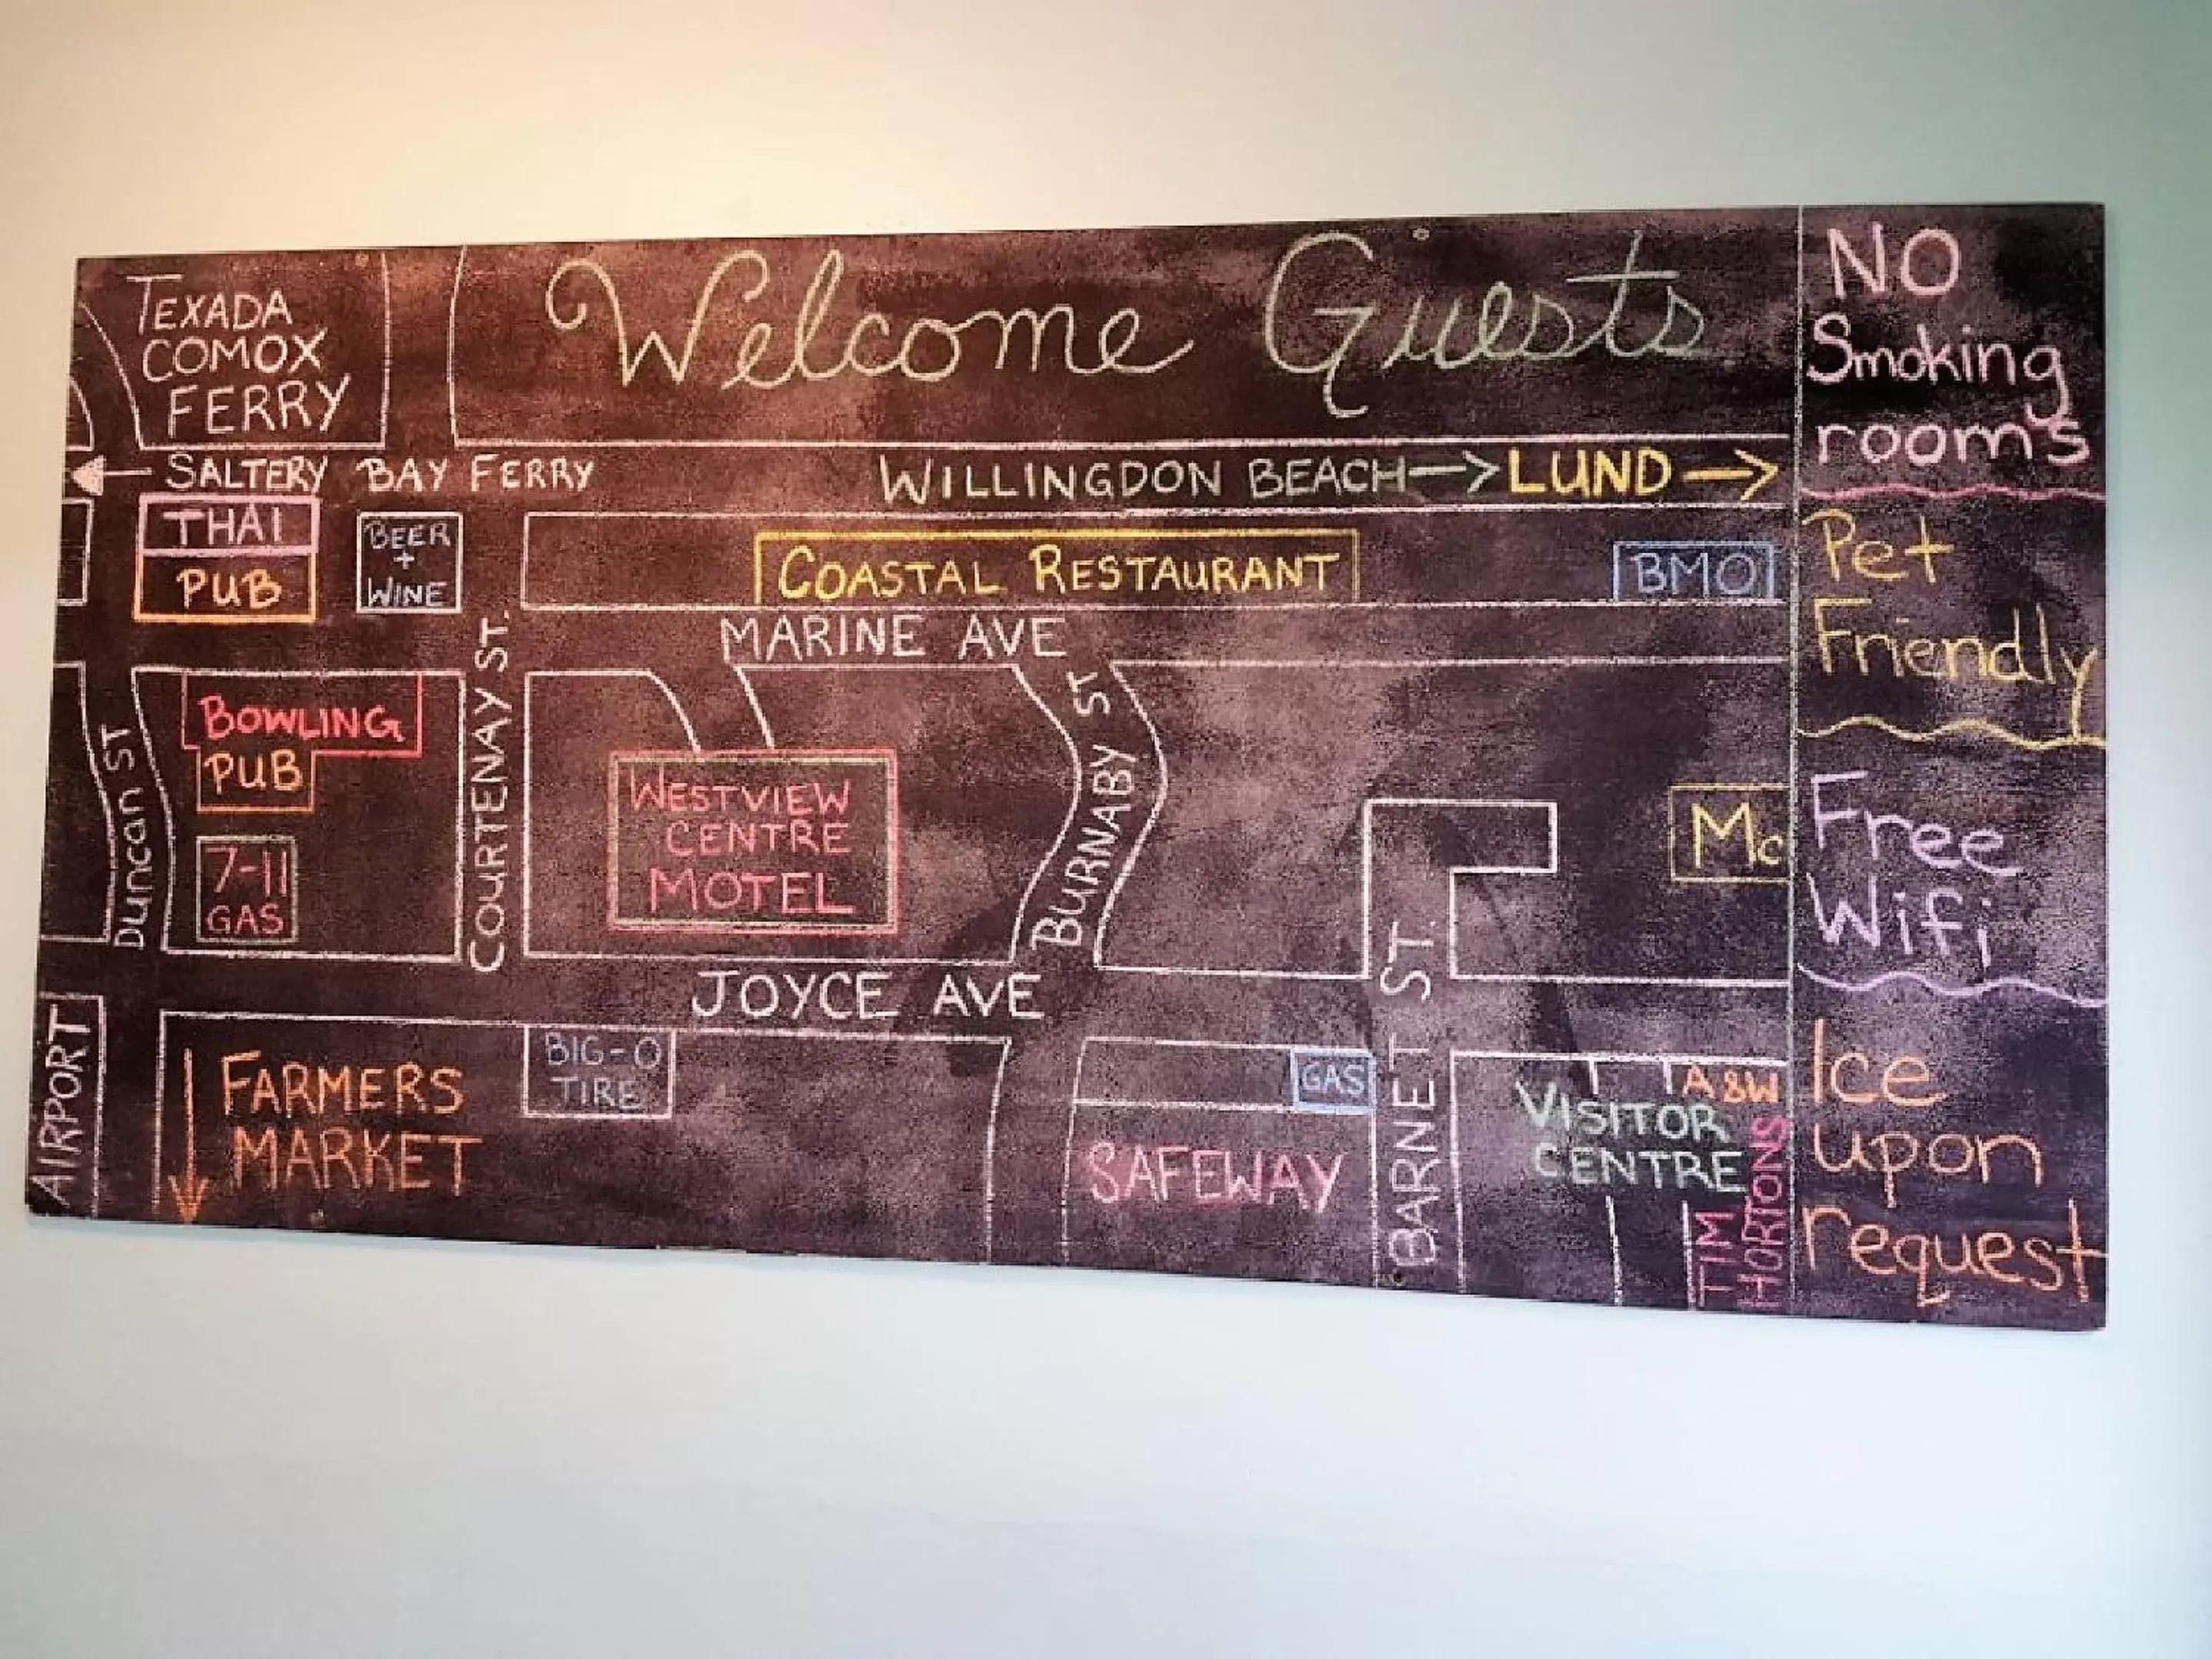 Welcome Guests
TEXADA
COMOX
FERRY
SALTERY BAY FERRY
WILLINGDON BEACH → LUND →
THAI
PUB
BEER
+
WINE
COASTAL RESTAURANT
BMO
MARINE AVE
COURTENAY ST.
BURNABY ST
DUNCAN ST
BOWLING
PUB
7-11
GAS
WESTVIEW
CENTRE
MOTEL
Mc
JOYCE AVE
BARNET ST.
AIRPORT
FARMERS
MARKET
BIG-O
TIRE
GAS
SAFEWAY
BARNET
A&W
VISITOR
CENTRE
TIM
HORTONS
NO
Smoking
rooms
Pet
Friendly
Free
Wifi
Ice
upon
request